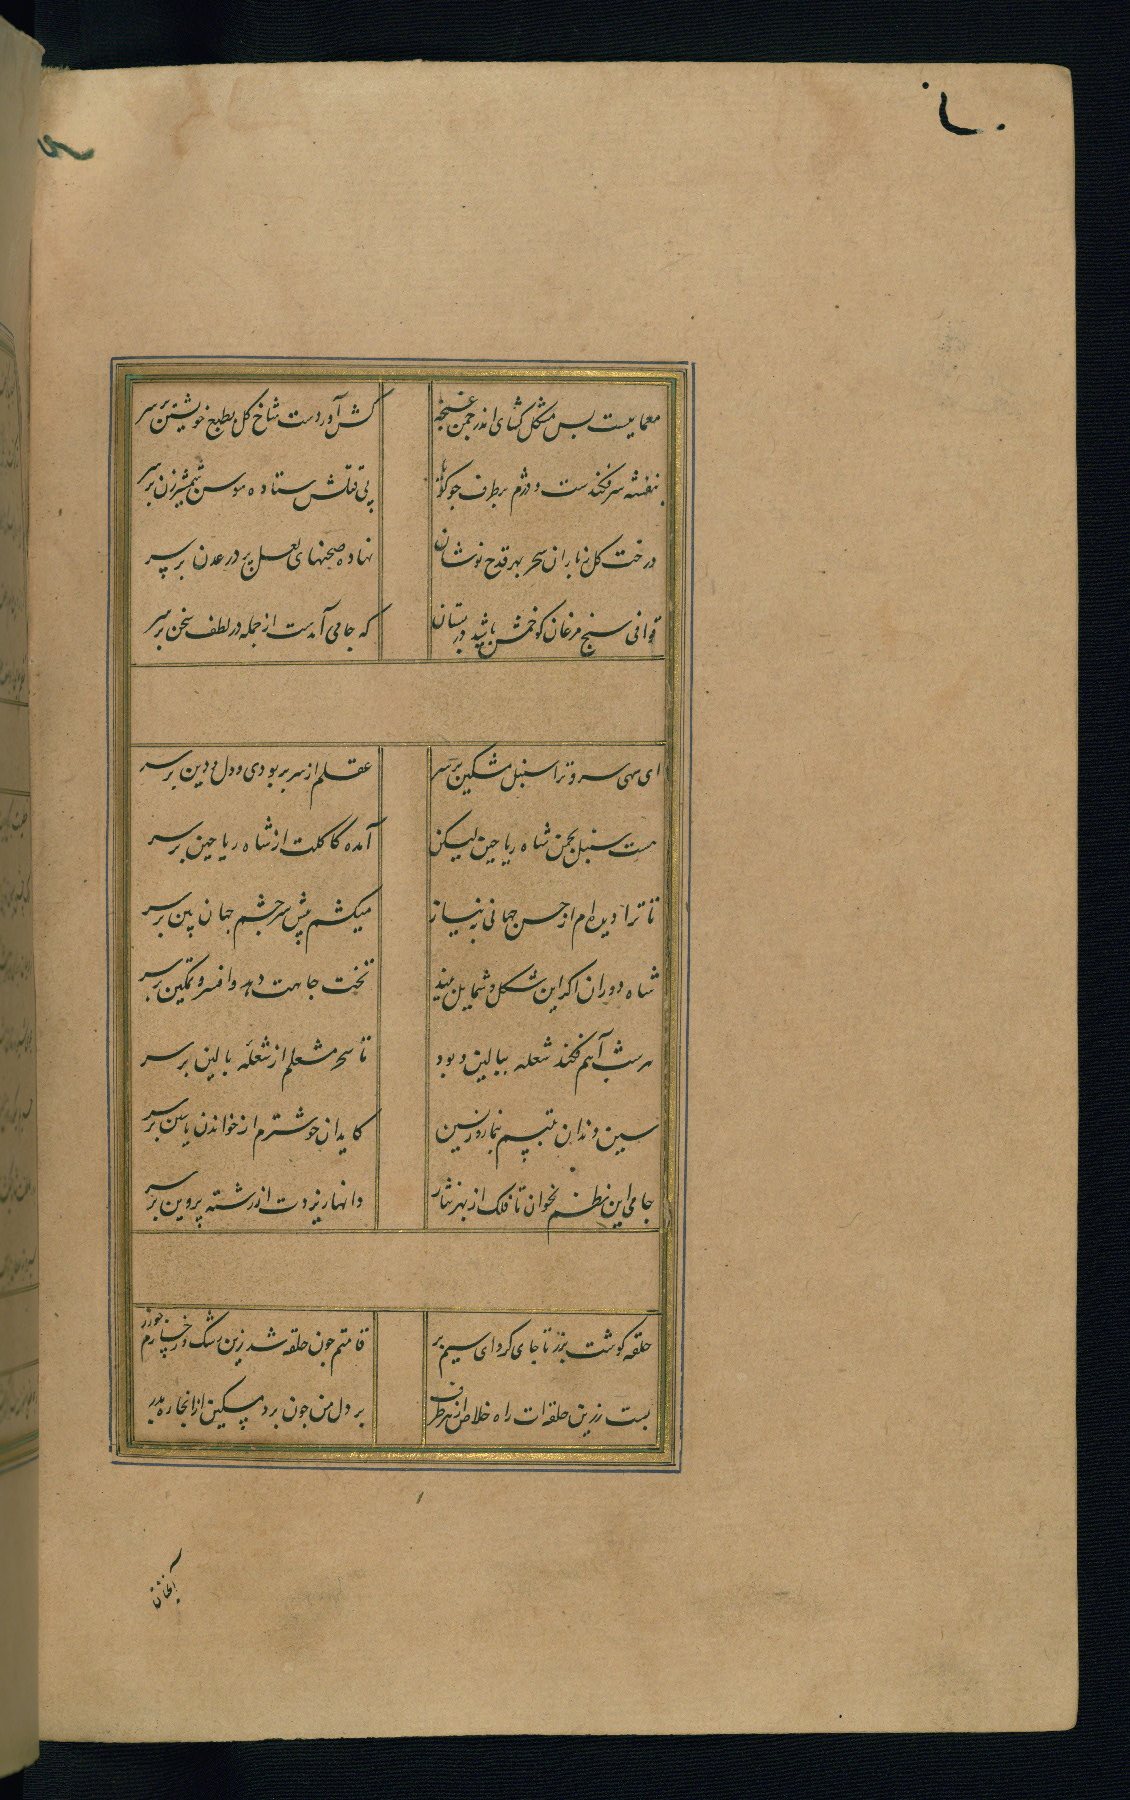 معماییست بس مشکل کشای اندر چمن غنچه
کش آوردست شاخ کل بطبع خویشتن بر سر
بنفشه سر فکندست و دژم بر طرف جو کویا
پی قتلش ستاده سوسن شمشیرزن بر سر
درخت کل ز باران سحر بهر قدح نوشان
نهاده صحنهای لعل پر در عدن بر سر
قوافی سنج مرغان کو خمش باشید در بستان
که جامی آمدست از جمله در لطف سخن بر سر
ای سهی سرو ترا سنبل مشکین بر سر
عقلم از سر بربودی و دل و دین بر سر
هست سنبل بچمن شاه ریاحین لیکن
آمده کاکلت از شاه ریاحین بر سر
تا ترا دیده‌ام از حسن جهانی به نیاز
میکشم پیش سر چشم جهان بین بر سر
شاه دوران اکر این شکل و شمایل بیند
تخت جاهت دهد و افسر و تمکین بر سر
هر شب آهم فکند شعله ببالین و بود
تا سحر مشعلم از شعله بالین بر سر
سین دندان بتبسم بنما روز پسین
کایدان خوشترم از خواندن یاسین بر سر
جامی این نظم بخوان تا فلک از بهر نثار
دانها ریزدت از رشته پروین بر سر
حلقه کوشت بزر تا جای کرد ای سیم بر
قامتم چون حلقه شد زین رشک و رخسارم چو زر
بست زرین حلقه‌ات راه خلاص از هر طرف
بر دل من چون برد مسکین از انجا ره بدر